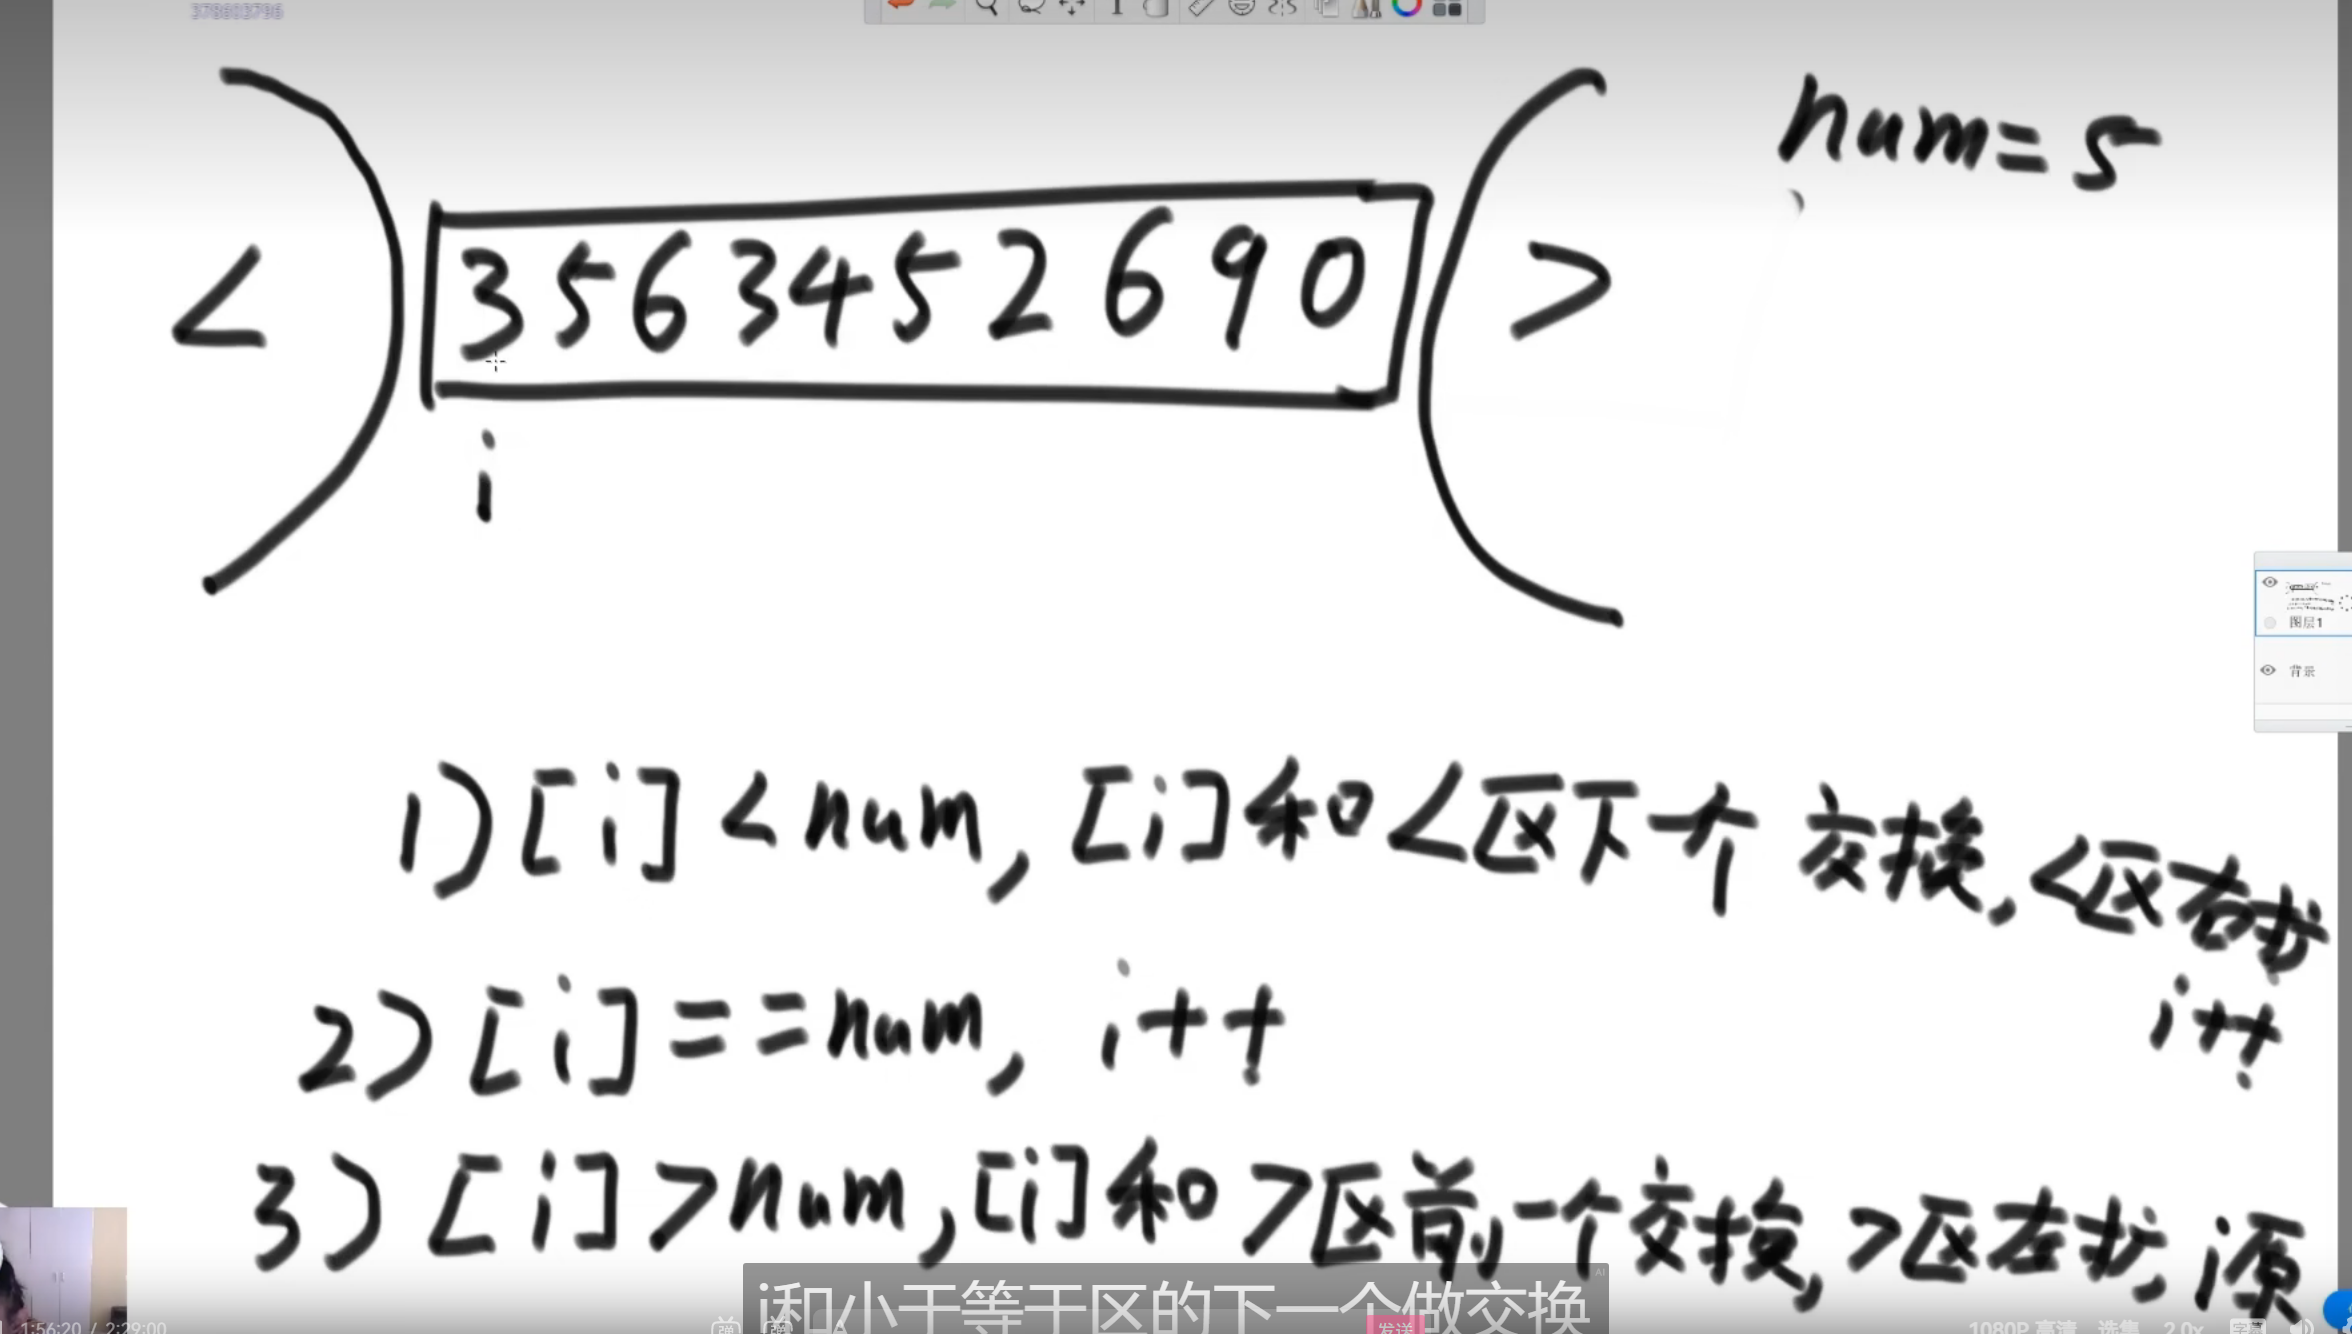 378603796
num=5
< 3 5 6 3 4 5 2 6 9 0 >
i
图层1
背景
1) [i] < num, [i]和<区下一个 交换, <区右扩
i++
2) [i] == num, i++
3) [i] > num, [i]和>区前一个交换, >区左扩, i原
i和小于等于区的下一个做交换
发送
1:56:20 / 2:29:00
1080P 高清 选集 2.0x 字幕